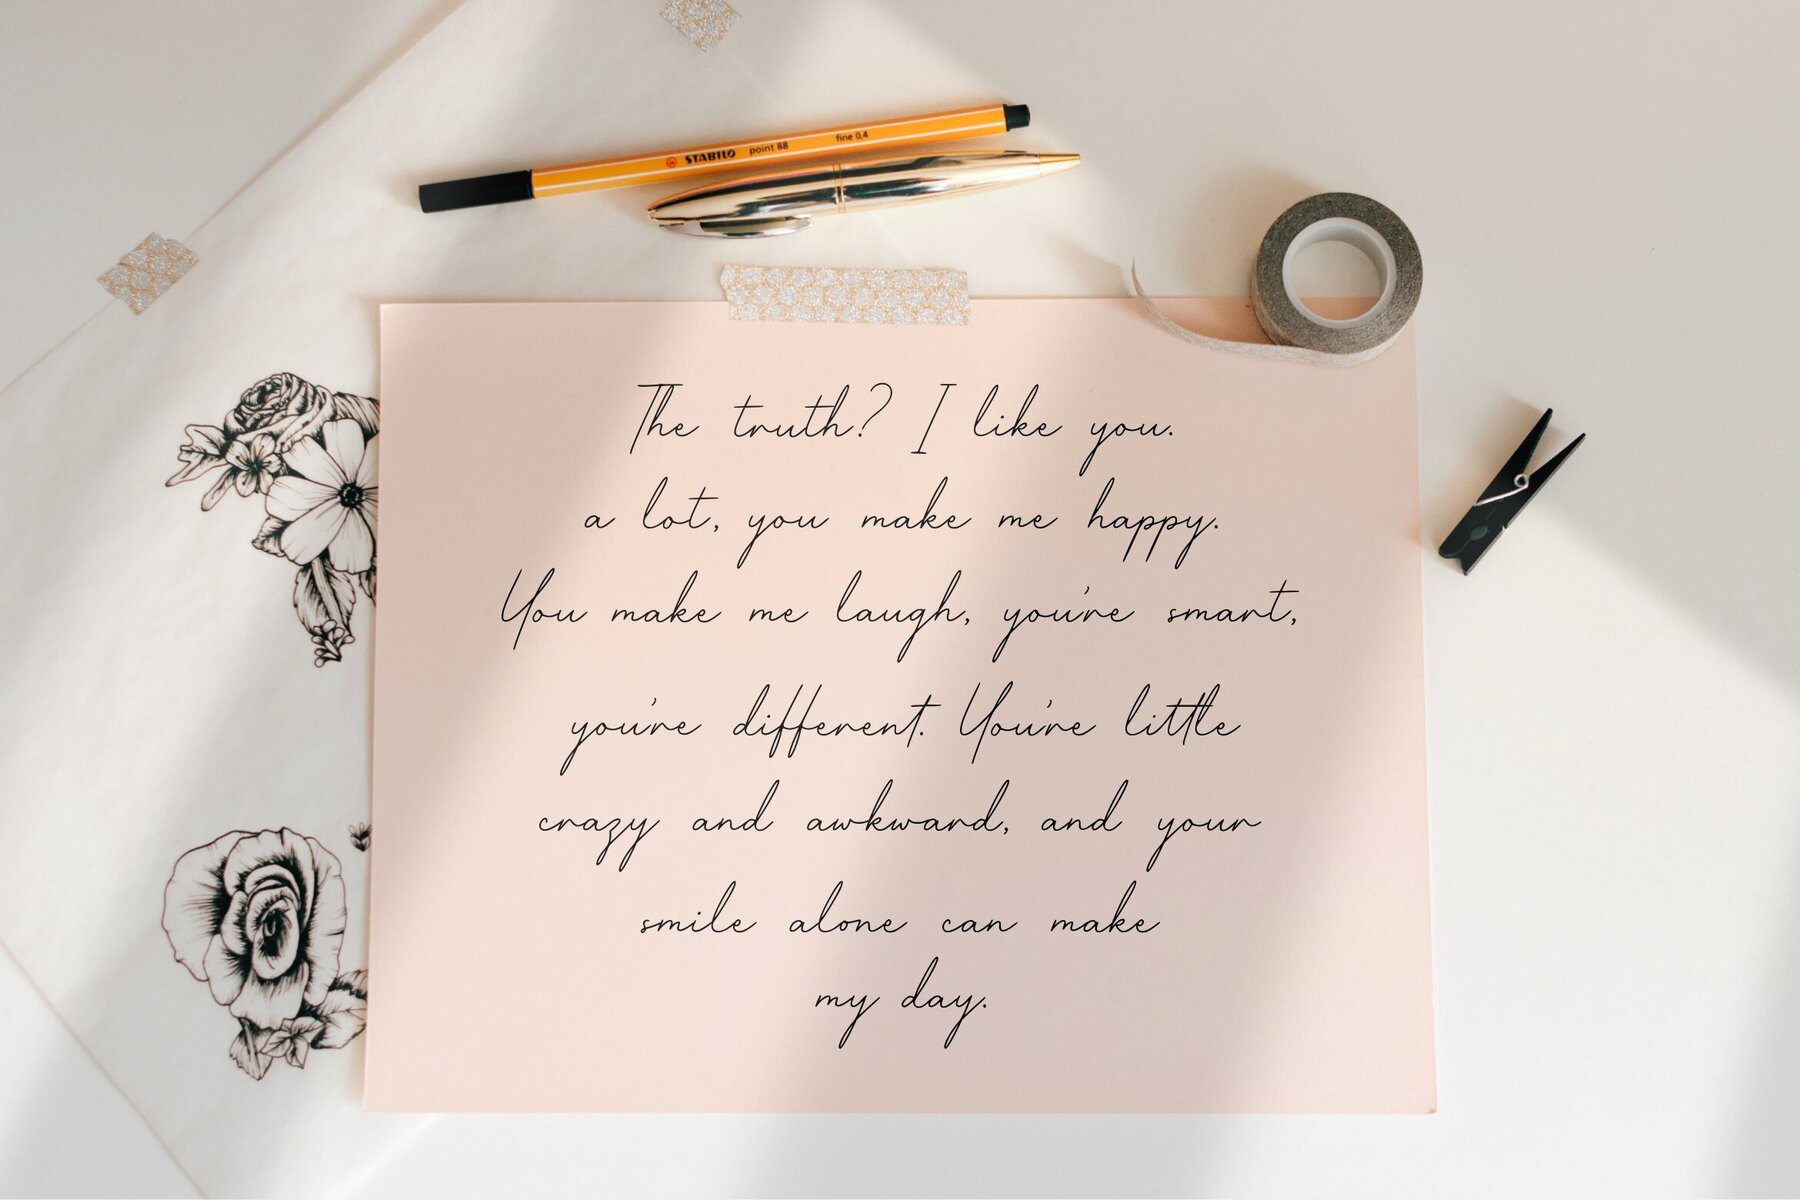 STABILO point 88 fine 0,4
The truth? I like you.
a lot, you make me happy.
You make me laugh, you're smart,
you're different. You're little
crazy and awkward, and your
smile alone can make
my day.